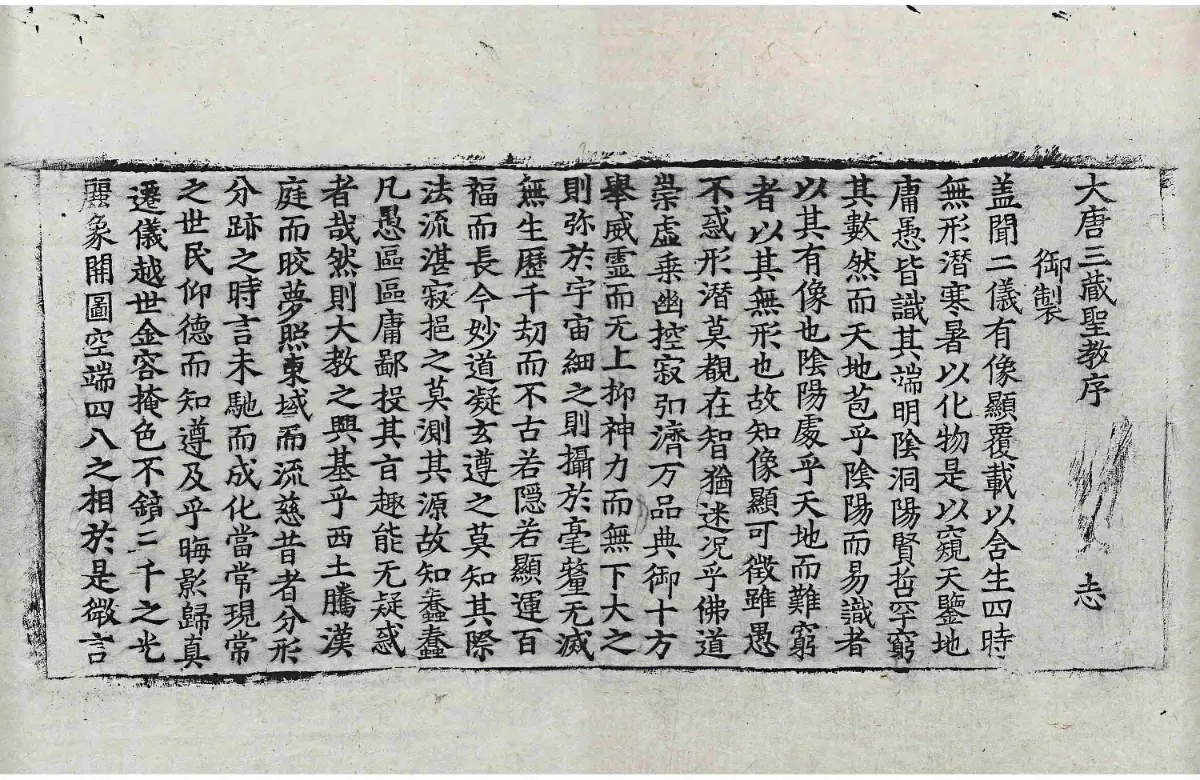 大唐三藏聖教序 忐
御製
盖聞二儀有像顯覆載以含生四時
無形潜寒暑以化物是以窺天鑒地
庸愚皆識其端明陰洞陽賢哲罕窮
其數然而天地苞乎陰陽而易識者
以其有像也陰陽處乎天地而難窮
者以其無形也故知像顯可徵雖愚
不惑形潜莫覩在智猶迷况乎佛道
崇虛乗幽控寂弘濟万品典御十方
舉威靈而无上抑神力而無下大之
則弥於宇宙細之則攝於毫釐无滅
無生歷千劫而不古若隱若顯運百
福而長今妙道凝玄遵之莫知其際
法流湛寂挹之莫測其源故知蠢蠢
凡愚區區庸鄙投其旨趣能无疑惑
者哉然則大教之興基乎西土騰漢
庭而皎夢照東域而流慈昔者分形
分跡之時言未馳而成化當常現常
之世民仰德而知遵及乎晦影歸真
遷儀越世金容掩色不鏡三千之光
麗象開圖空端四八之相於是微言